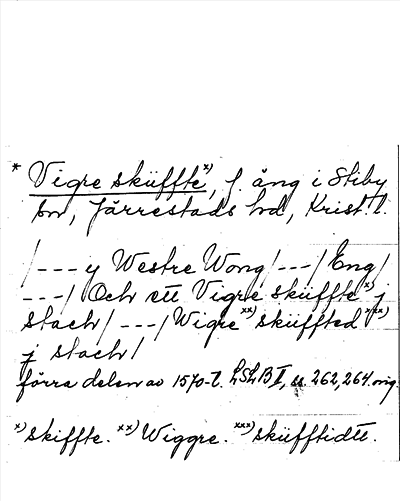 * Vigre sküffte x), f. äng i Stiby
sn, Järrestads hd, Krist. l.
/---y Westre Wong/---/Eng/
---/ Och ett Vigre sküffte x) j
stach/ ---/Wigre xx) sküffted xxx)
j stach/
förra delen av 1570-t. LSLB I, ss. 262, 264. orig.
x) skiffte. xx) Wiggre. xxx) süfftidtt.